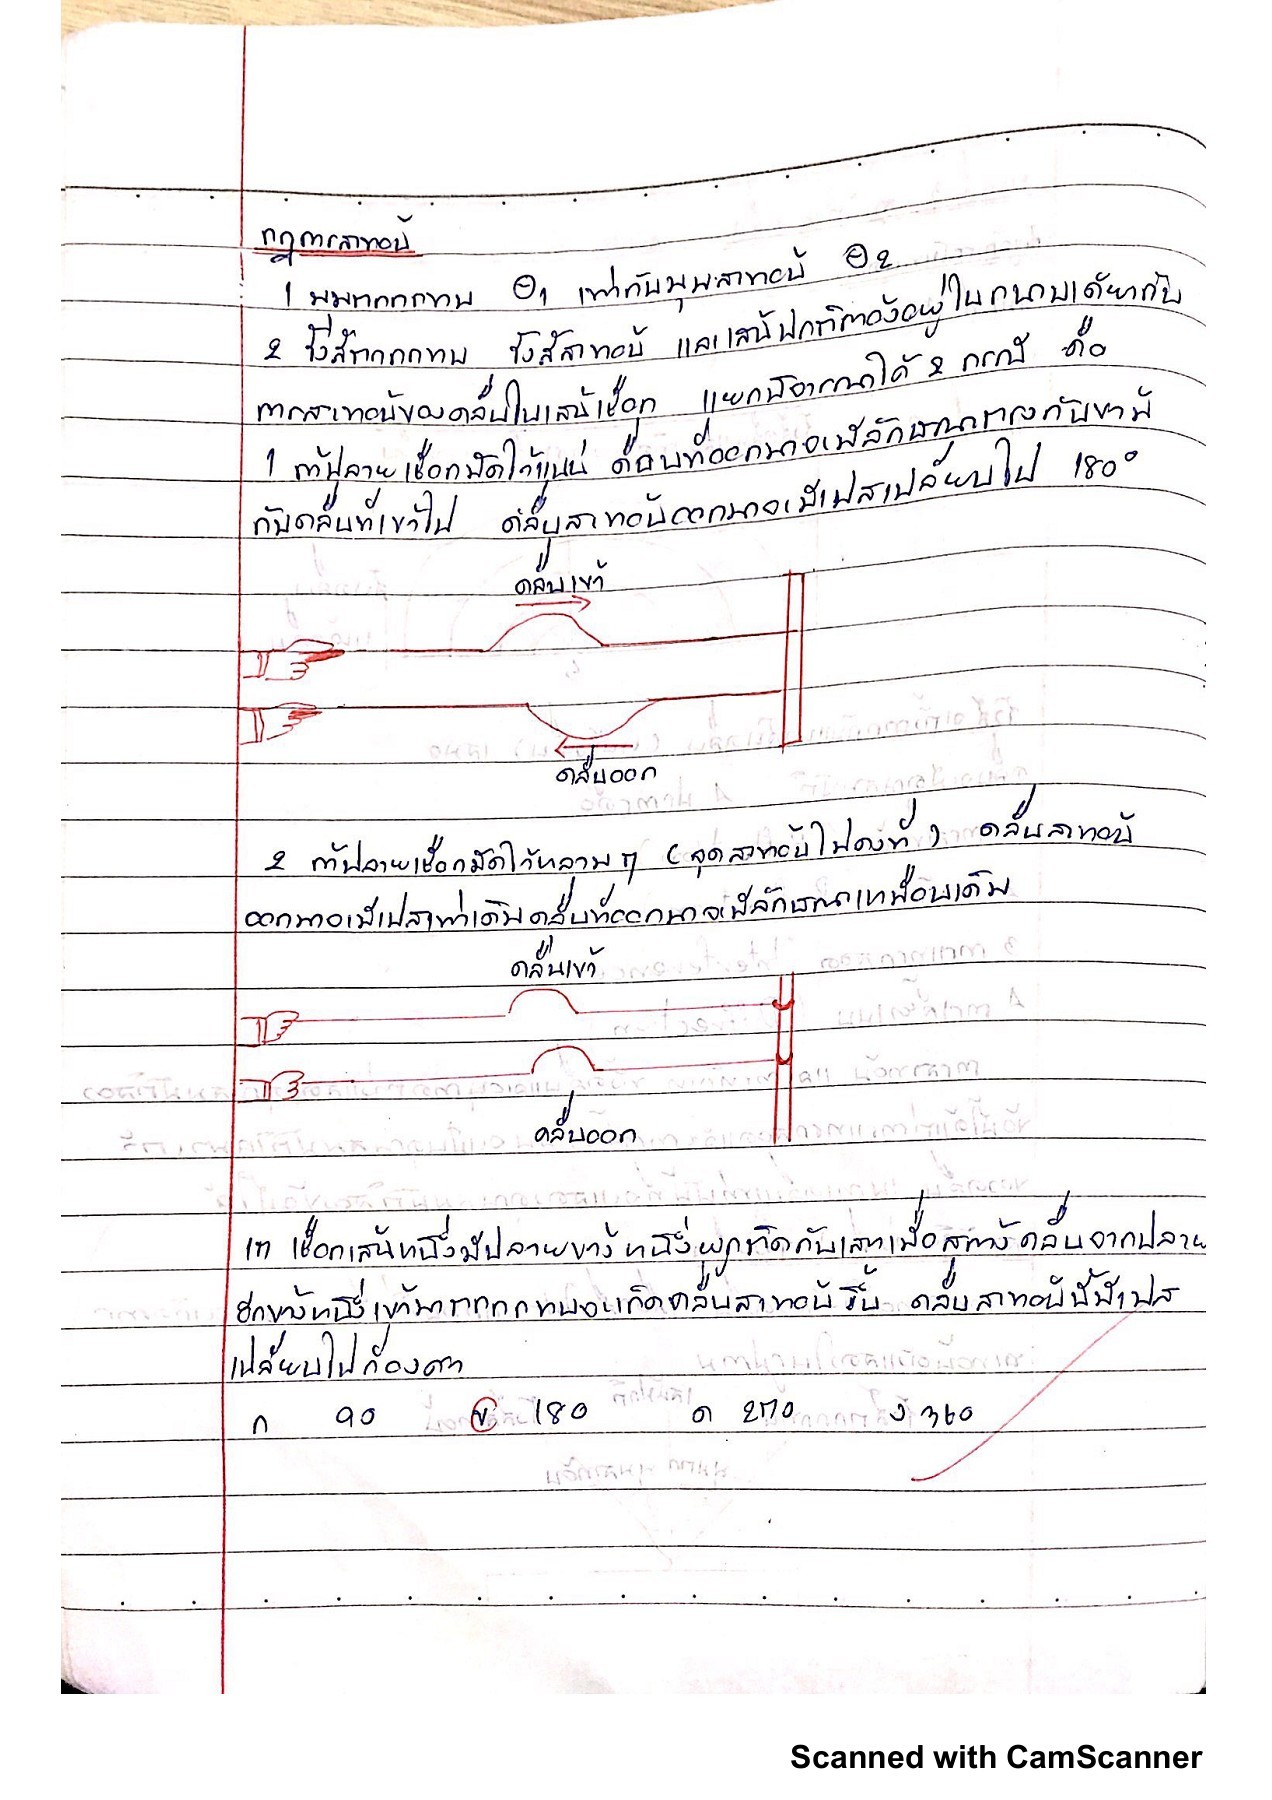 กฎการสะท้อน
1 มุมตกกระทบ θ1 เท่ากับมุมสะท้อน θ2
2 รังสีตกกระทบ รังสีสะท้อน และเส้นปกติต้องอยู่ในระนาบเดียวกัน
การสะท้อนของคลื่นในเส้นเชือก แยกพิจารณาได้ 2 กรณี คือ
1 ถ้าปลายเชือกมัดไว้แน่น คลื่นที่ออกมาจะมีลักษณะตรงกันข้าม
กับคลื่นที่เข้าไป คลื่นสะท้อนออกมาจะมีเฟสเปลี่ยนไป 180°
คลื่นเข้า
คลื่นออก
2 ถ้าปลายเชือกมัดไว้หลวมๆ (จุดสะท้อนไม่คงที่) คลื่นสะท้อน
ออกมาจะมีเฟสเท่าเดิมคลื่นที่ออกมาจะมีลักษณะเหมือนเดิม
คลื่นเข้า
คลื่นออก
เชือกเส้นหนึ่งมีปลายข้างหนึ่งผูกติดกับเสาเมื่อสร้างคลื่นจากปลาย
อีกข้างหนึ่งเข้ามาตกกระทบจะเกิดคลื่นสะท้อนขึ้น คลื่นสะท้อนนี้มีเฟส
เปลี่ยนไปกี่องศา
ก 90 ข 180 ค 270 ง 360
Scanned with CamScanner